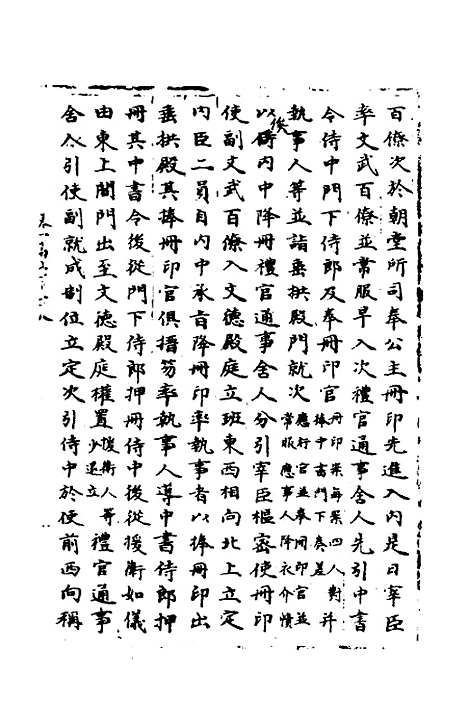 百僚次於朝堂所司奉公主冊印先進入內是日宰臣
率文武百僚並常服早入次禮官通事舍人先引中書
令侍中門下侍郎及奉冊印官冊印案每案四人對捧中書門下奏差并
執事人等並詣垂拱殿門就次應行官並奉冊印官並常服應事人降衣介幘
以後俟內中降冊禮官通事舍人分引宰臣樞密使冊印
使副文武百僚入文德殿庭立班東西相向北上立定
內臣二員自內中承旨降冊印率執事者以捧冊印出
垂拱殿其捧冊印官俱搢笏率執事人導中書侍郎押
冊其中書令後從門下侍郎押冊侍中後從援衛如儀
由東上閤門出至文德殿庭權置援衛人等少退立禮官通事
舍人引使副就成冊位立定次引侍中於使前西向稱